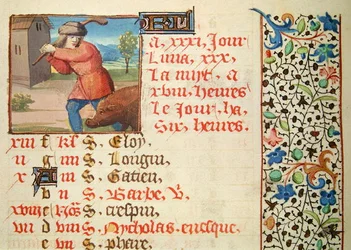 a. xxxi. Jour
Luna. xxx.
La nuyt. a
xviii. heures
Le Jour. ha
Six. heures.
xiii f kl S. Eloy.
ii g iiii S. Longin.
x A iii S. Gatien.
b ii S. Barbe. V.
xviii c S. crespin.
vii d viii S. Nycholas. euesque.
e vii S. phare.